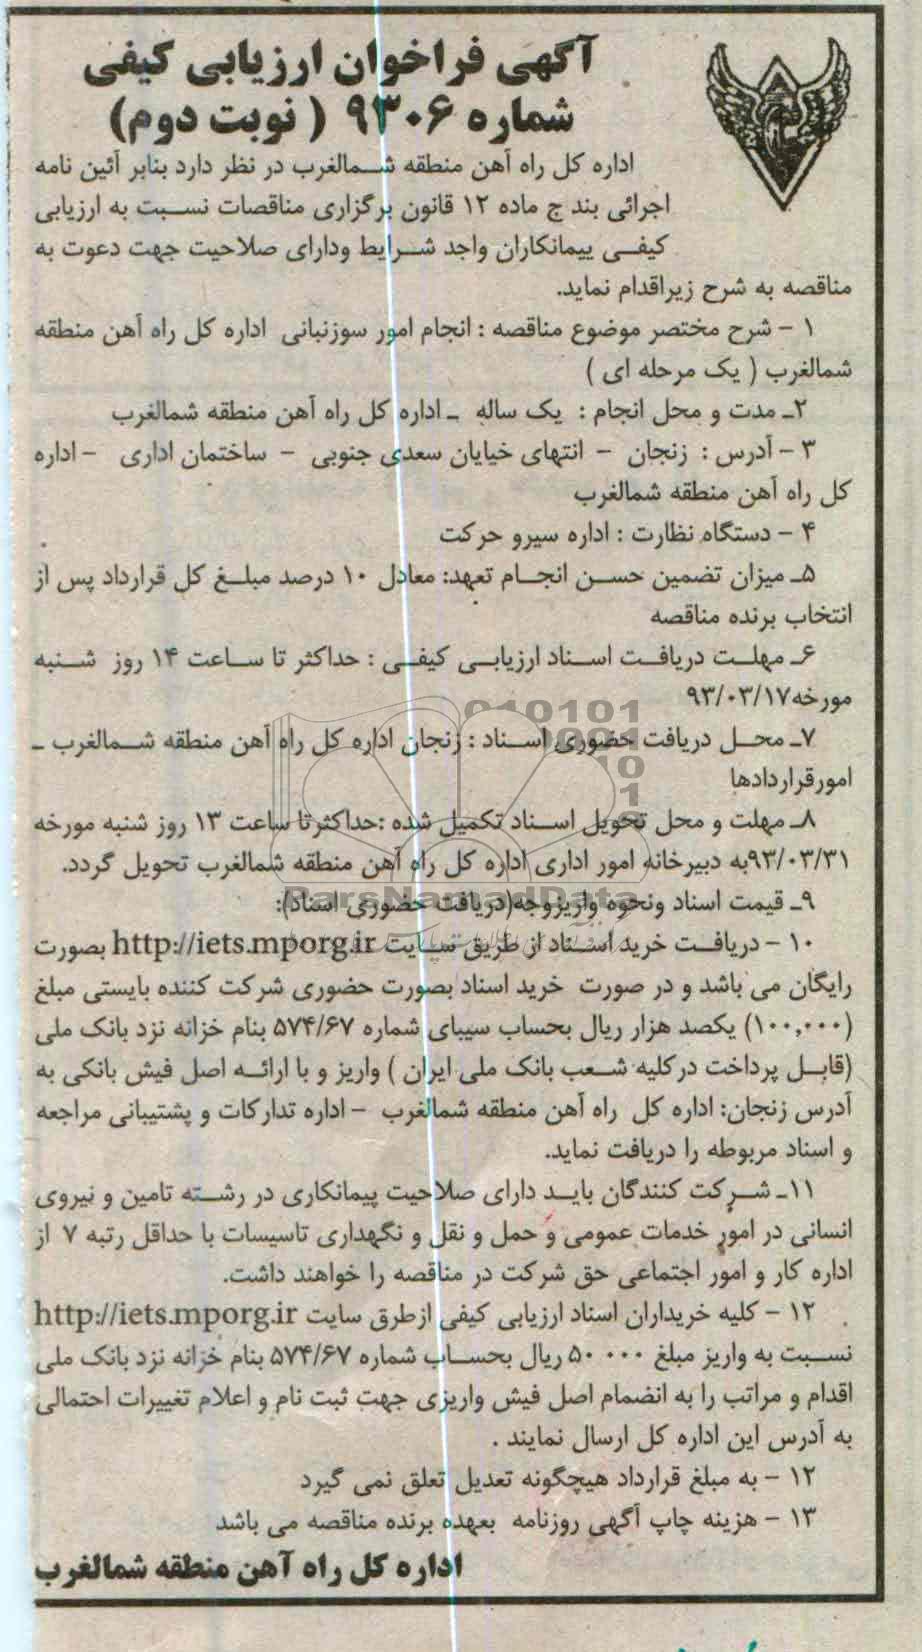 آگهی فراخوان ارزیابی کیفی
شماره ۹۳۰۶ ( نوبت دوم)
اداره کل راه آهن منطقه شمالغرب در نظر دارد بنابر آئین نامه
اجرائی بند ج ماده ۱۲ قانون برگزاری مناقصات نسبت به ارزیابی
کیفی پیمانکاران واجد شرایط ودارای صلاحیت جهت دعوت به
مناقصه به شرح زیراقدام نماید.
۱ - شرح مختصر موضوع مناقصه : انجام امور سوزنبانی اداره کل راه آهن منطقه
شمالغرب ( یک مرحله ای )
۲ـ مدت و محل انجام : یک ساله ـ اداره کل راه آهن منطقه شمالغرب
۳ - آدرس : زنجان - انتهای خیابان سعدی جنوبی - ساختمان اداری - اداره
کل راه آهن منطقه شمالغرب
۴ - دستگاه نظارت : اداره سیرو حرکت
۵ـ میزان تضمین حسن انجام تعهد: معادل ۱۰ درصد مبلغ کل قرارداد پس از
انتخاب برنده مناقصه
۶ـ مهلت دریافت اسناد ارزیابی کیفی : حداکثر تا ساعت ۱۴ روز شنبه
مورخه۹۳/۰۳/۱۷
۷ـ محل دریافت حضوری اسناد : زنجان اداره کل راه آهن منطقه شمالغرب ـ
امورقراردادها
۸ـ مهلت و محل تحویل اسناد تکمیل شده :حداکثرتا ساعت ۱۳ روز شنبه مورخه
۹۳/۰۳/۳۱به دبیرخانه امور اداری اداره کل راه آهن منطقه شمالغرب تحویل گردد.
ParsNamadData
۹ـ قیمت اسناد ونحوه واریزوجه(دریافت حضوری اسناد):
۱۰ - دریافت خرید اسناد از طریق سایت http://iets.mporg.ir بصورت
رایگان می باشد و در صورت خرید اسناد بصورت حضوری شرکت کننده بایستی مبلغ
(۱۰۰,۰۰۰) یکصد هزار ریال بحساب سیبای شماره ۵۷۴/۶۷ بنام خزانه نزد بانک ملی
(قابل پرداخت درکلیه شعب بانک ملی ایران ) واریز و با ارائه اصل فیش بانکی به
آدرس زنجان: اداره کل راه آهن منطقه شمالغرب - اداره تدارکات و پشتیبانی مراجعه
و اسناد مربوطه را دریافت نماید.
۱۱ـ شرکت کنندگان باید دارای صلاحیت پیمانکاری در رشته تامین و نیروی
انسانی در امور خدمات عمومی و حمل و نقل و نگهداری تاسیسات با حداقل رتبه ۷ از
اداره کار و امور اجتماعی حق شرکت در مناقصه را خواهند داشت.
۱۲ - کلیه خریداران اسناد ارزیابی کیفی ازطرق سایت http://iets.mporg.ir
نسبت به واریز مبلغ ۵۰ ۰۰۰ ریال بحساب شماره ۵۷۴/۶۷ بنام خزانه نزد بانک ملی
اقدام و مراتب را به انضمام اصل فیش واریزی جهت ثبت نام و اعلام تغییرات احتمالی
به آدرس این اداره کل ارسال نمایند .
۱۲ - به مبلغ قرارداد هیچگونه تعدیل تعلق نمی گیرد
۱۳ - هزینه چاپ آگهی روزنامه بعهده برنده مناقصه می باشد
اداره کل راه آهن منطقه شمالغرب